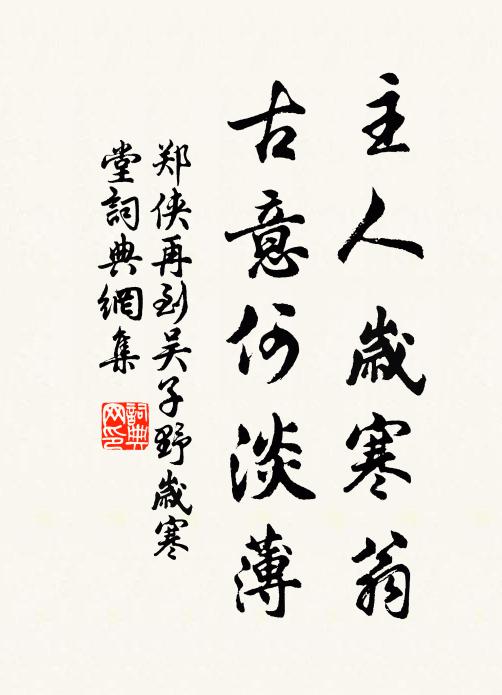 主人歲寒翁
古意何淡薄
郑侠再到吴子野歲寒
堂詞典網集
詞典网印